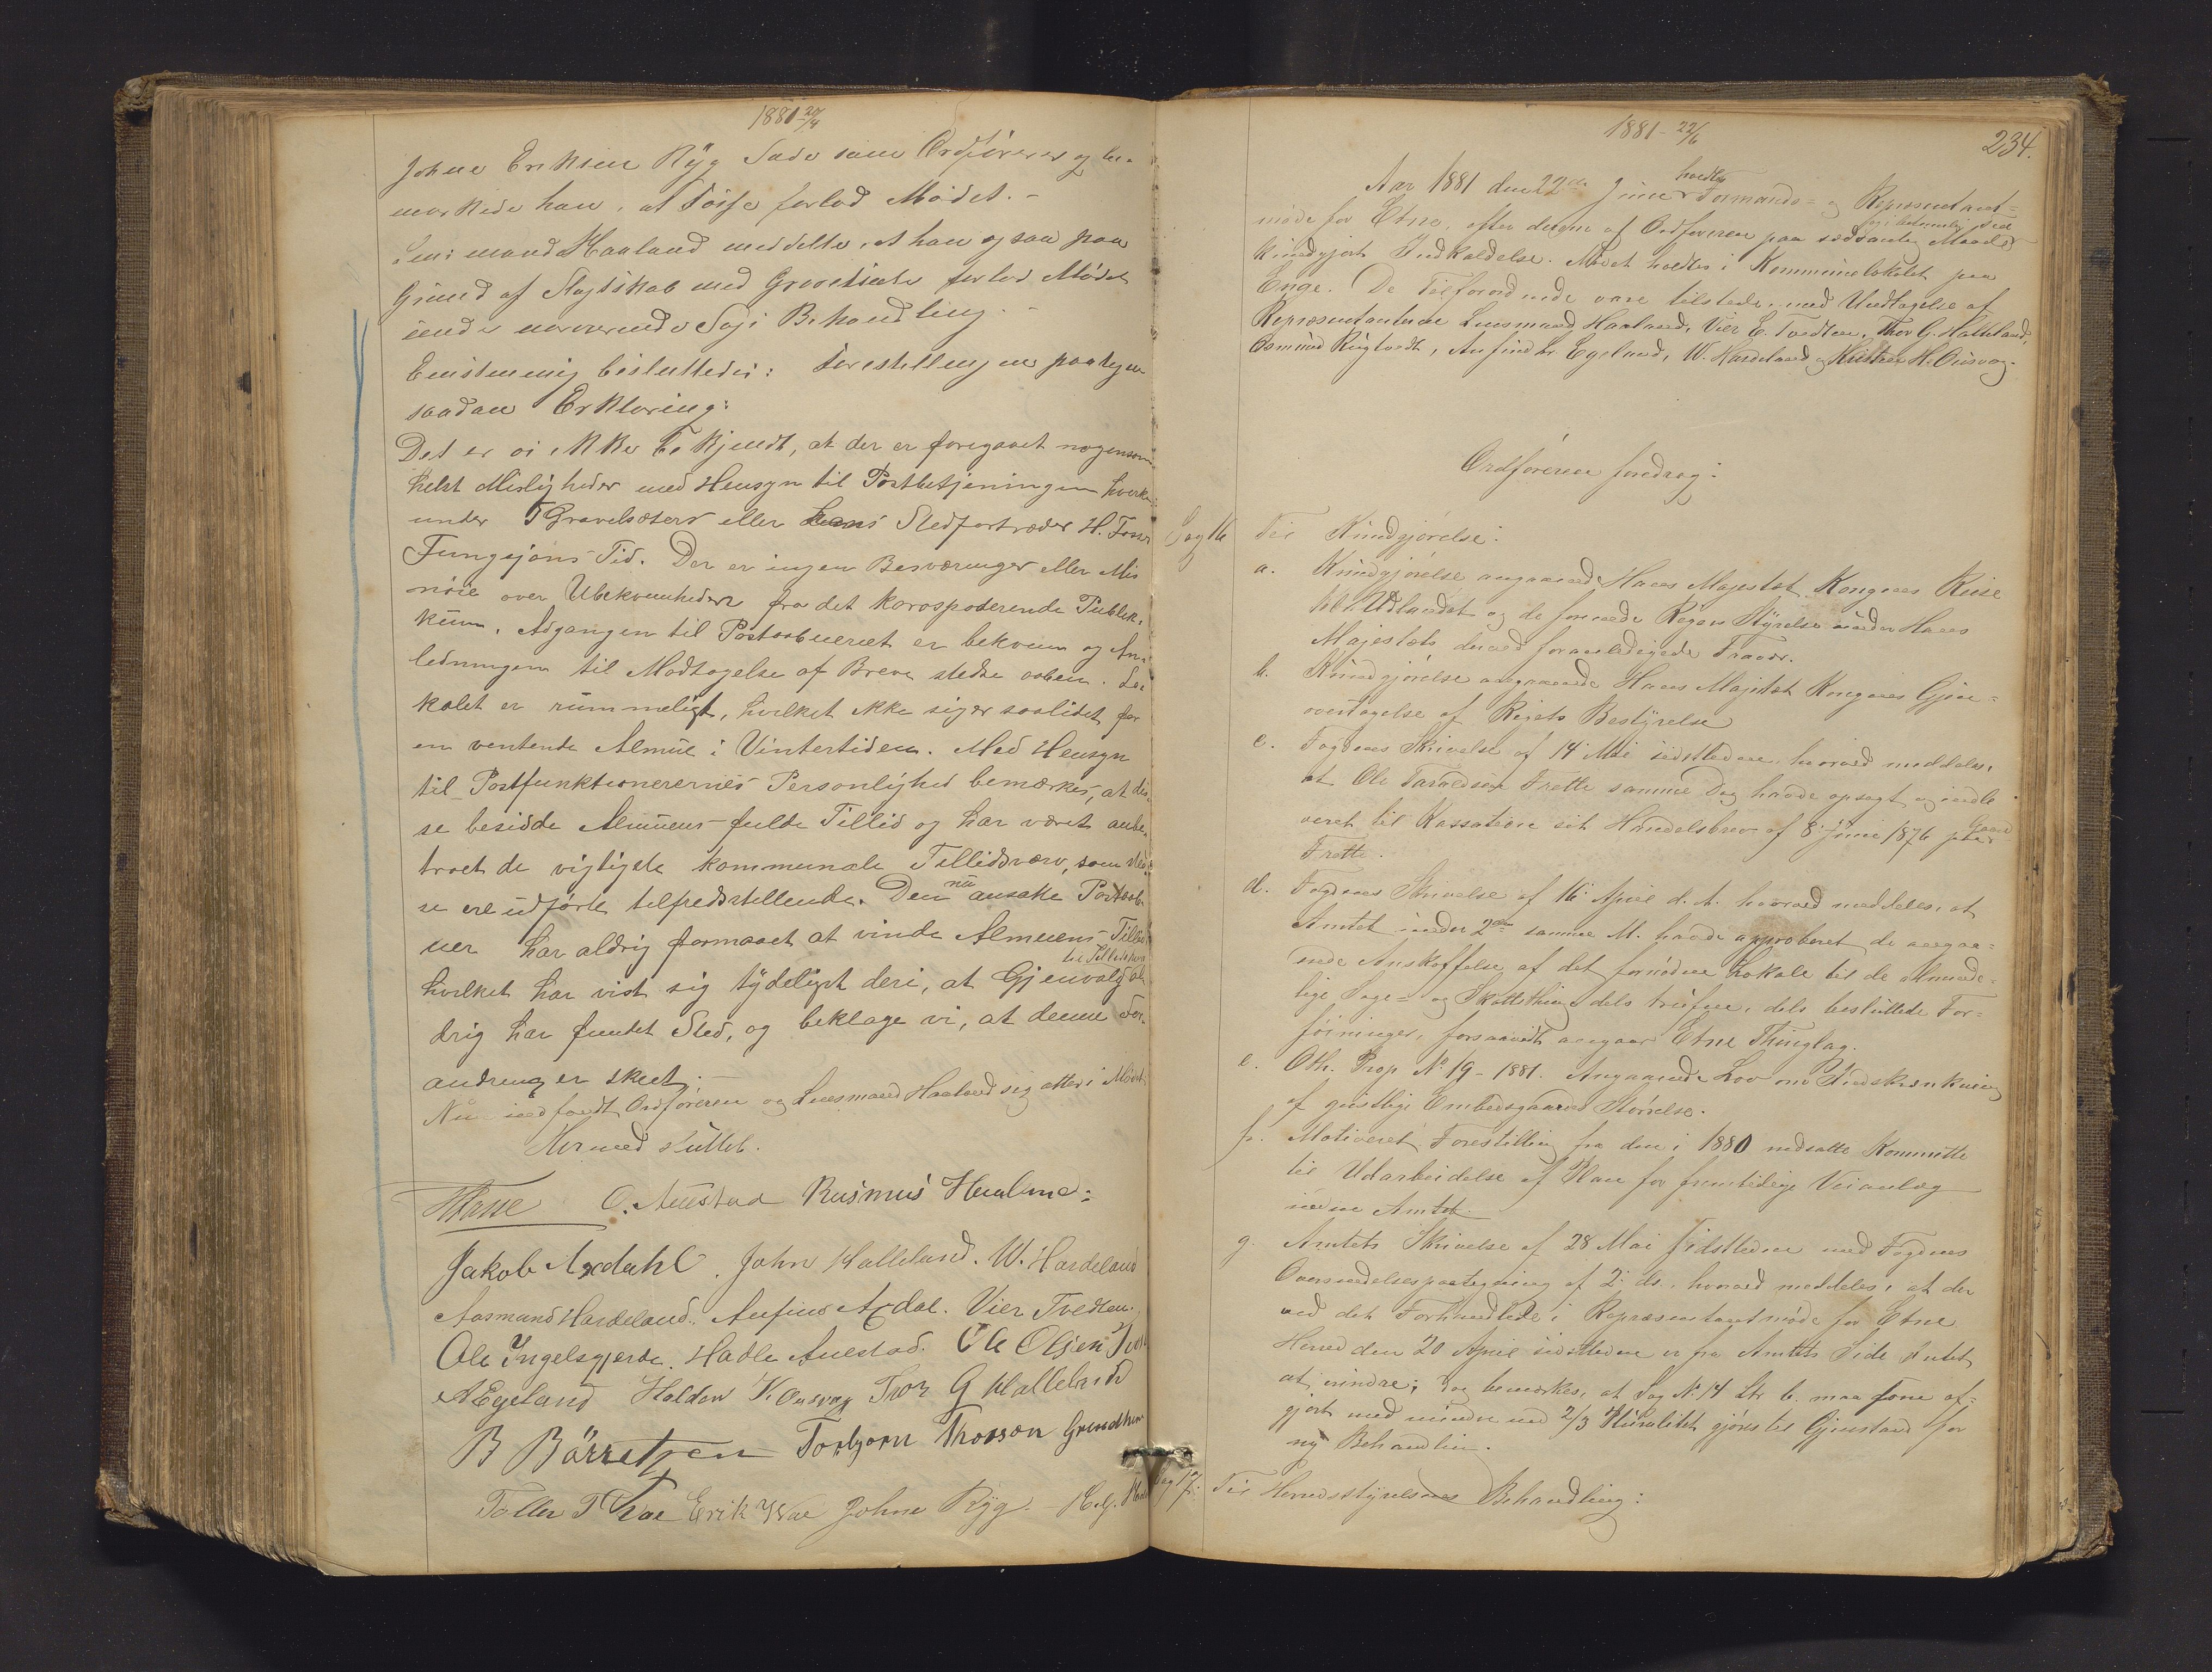 1881 20/4
Johne Eriksen Ryg Sade som Ordförerer og be-
mærkede han, at Tösse forlod Mödet. -
Lensmand Haaland meddelte, at han ogsaa paa
Grund af Slegtskab med Gravelsæter forlod Mödet
under nærværende Sags Behandling. -
Eenstemmig besluttedes: Forestillingen paategn.
saadan Erklæring:
Det er os ikke bekjendt, at der er foregaaet nogensom
helst Misligheder med Hensyn til Postbetjeningen hverken
under T Gravelsæters eller hans Stedfortræder H. Tösse
Fungsjons-Tid. Der er ingen Besværinger eller Mis
nöie over Ubekvemheder fra det korosponderende Publik-
kum. Adgangen til Postaabneriet er bekvem og An-
ledningen til Modtagelse af Breve stedse aaben. Lo-
kalet er rummeligt, hvilket ikke siger saalidet for
en ventende Almue i Vintertiden. Med Hensyn
til Postfunktionerernes Personlighed bemærkes, at dis-
se besidde Almuens fulde Tillid og har været anbe-
troet de vigtigste kommunale Tillidsværv, som dis-
se ere udförte tilfredsstillende. Den nu ansatte Postaab-
ner har aldrig formaaet at vinde Almuens Tillid
hvilket har vist sig tydeligst deri, at Gjenvalg til Tillidshverv al
drig har fundet Sted, og beklage vi, at denne For-
andring er skeet. -
Nu indfandt Ordföreren og Lensmand Haaland sig atter i Mödet.
Hermed sluttet.
HTösse O. Austad Rasmus Heulund:
Jakob Axdahl. John Halleland. W. Hardeland
Aasmund Hardeland. Anfind Axdal. Vier Tvedten.
Ole Ingelsgjerde. Hadle Austad. Ole Olsen
AEgeland Haldor K. Ousvag Thor G Halleland
B Börretzen Torbjörn Thorson Grindheim
Toller T Frae Erik Frae Johne Ryg. Helg.
1881 - 22/6
234.
Aar 1881 den 22de Juni holdtes Formands- og Repræsentant-
möde for Etne, efter derom af Ordföreren paa sædvanlig Maade og i betimelig Tid
kundgjort Indkaldelse. Mödet holdtes i Kommunelokalet paa
Enge. De Tilforordnede vare tilstede, med Undtagelse af
Repræsentanterne Lensmand Haaland, Vier E. Tvedten, Thor G. Halleland,
Osmund Rygtvedt, Anfind Egeland, W. Hardeland og H. Ousvog.
Ordföreren foredrog:
Sag 16 Til Kundgjörelse:
a. Kundgjörelse angaaende Hans Majestæt Kongens Reise
til Udlandet og de fornöde Regjer. Styrelse under Hans
Majestæts derved foranledigede Fravær.
b. Kundgjörelse angaaende Hans Majestæt Kongens Gjen-
overtagelse af Rigets Bestyrelse
c. Fogdens Skrivelse af 14 Mai sidstleden, hvorved meddeles,
at Ole Taraldsen Frette samme Dag havde opsagt og indle
veret til Kassation sit Handelsbrev af 8 Juni 1876 paa Gaard
Frette.
d. Fogdens Skrivelse af 16 April d. A. hvorved meddeles, at
Amtet under 2den samme M. havde approberet de angaa-
ende Anskaffelse af det fornödne Lokale til de alminde-
lige Sage- og Skattething dels trufne, dels besluttede For-
föininger, forsaavidt angaar Etne Thinglag.
e. Oth. Prop. No 19 - 1881. Angaaende Lov om Indskrænkning
af geistlige Embedsgaards Störrelse.
f. Motiveret Forestilling fra den i 1880 nedsatte Kommitte
til Udarbeidelse af Plan for fremtidige Veianlæg
inden Amtet.
g. Amtets Skrivelse af 28 Mai sidstleden med Fogdens
Oversendelsespaategning af 2. ds., hvorved meddeles, at der
ved det Forhandlede i Repræsentantmöde for Etne
Herred den 20 April sidstleden er fra Amtets Side Intet
at erindre; dog bemærkes, at Sag No 14 Ltr b. maa som af-
gjort med mindre end 2/3 Pluralitet gjöres til Gjenstand for
ny Behandling.
Sag 17. Til Herredsstyrelsens Behandling: